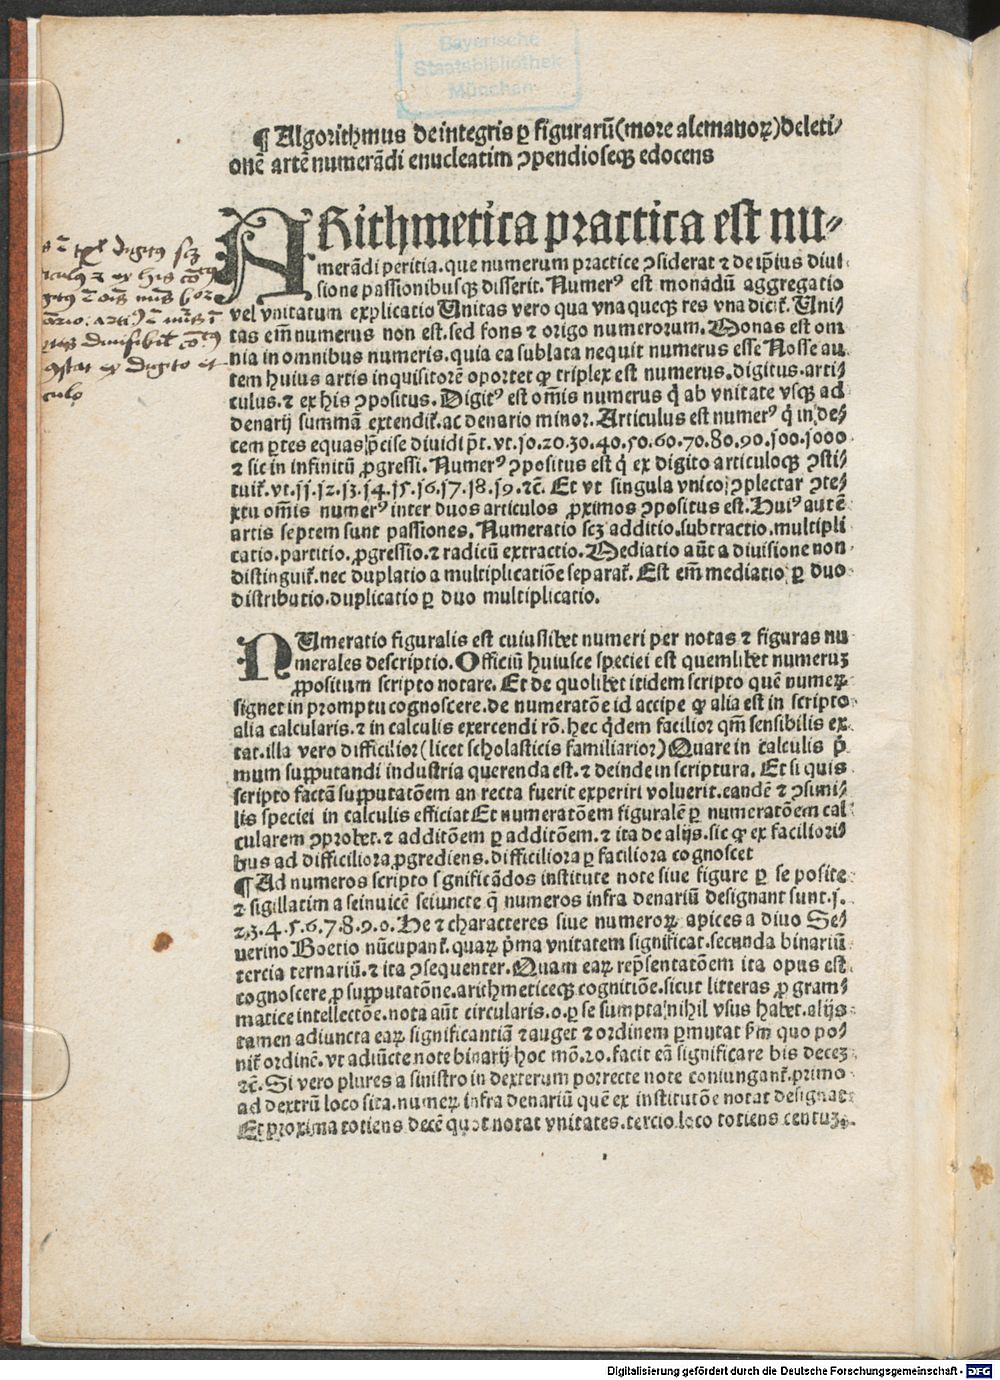 Bayerische
Staatsbibliothek
München
¶ Algorithmus de integris ꝑ figurarū (more alemanoꝝ) deleti⸗
onē artē numerādi enucleatim ꝯpendioseqꝫ edocens
ARithmetica practica est nu⸗
merādi peritia. que numerum practice ꝯsiderat ⁊ de ip̄ius diui⸗
sione passionibusqꝫ disserit. Numerꝰ est monadū aggregatio
vel vnitatum explicatio Unitas vero qua vna queqꝫ res vna dicit̄. Uni⸗
tas em̄ numerus non est. sed fons ⁊ origo numerorum. Monas est om
nia in omnibus numeris. quia ea sublata nequit numerus esse Nosse au
tem huius artis inquisitorē oportet ꝙ triplex est numerus. digitus. arti⸗
culus. ⁊ ex his ꝯpositus. Digitꝰ est om̄is numerus q̇ ab vnitate vsqꝫ ad
denarij summā extendit̄. ac denario minor. Articulus est numerꝰ q̇ in de⸗
cem ꝑtes equas p̄cise diuidi pt̄. vt. 10. 20. 30. 40. 50. 60. 70. 80. 90. 100. 1000
⁊ sic in infinitū ꝓgressi. Numerꝰ ꝯpositus est q̇ ex digito articuloqꝫ ꝯsti⸗
tuit̄. vt. 11. 12. 13. 14. 15. 16. 17. 18. 19. ⁊c̄. Et vt singula vnico ꝯplectar ꝯte⸗
xtu om̄is numerꝰ inter duos articulos ꝓximos ꝯpositus est. Huiꝰ autē
artis septem sunt passiones. Numeratio scꝫ additio. subtractio. multipli
catio. partitio. ꝓgressio. ⁊ radicū extractio. Mediatio aūt a diuisione non
distinguit̄. nec duplatio a multiplicatiōe separat̄. Est em̄ mediatio ꝑ duo
distributio. duplicatio ꝑ duo multiplicatio.
NUmeratio figuralis est cuiuslibet numeri per notas ⁊ figuras nu
merales descriptio. Officiū huiusce speciei est quemlibet numeruꝫ
ꝓpositum scripto notare. Et de quolibet itidem scripto quē numeꝝ
signet in promptu cognoscere. de numeratōe id accipe ꝙ alia est in scripto
alia calcularis. ⁊ in calculis exercendi rō. hec q̇dem facilior qm̄ sensibilis ex
tat. illa vero difficilior (licet scholasticis familiarior) Quare in calculis p̄
mum supputandi industria querenda est. ⁊ deinde in scriptura. Et si quis
scripto factā supputatōem an recta fuerit experiri voluerit. eandē ⁊ ꝯsimi⸗
lis speciei in calculis efficiat Et numeratōem figuralē ꝑ numeratōem cal
cularem ꝯprobet. ⁊ additōem ꝑ additōem. ⁊ ita de alijs. sic ꝙ ex faciliori⸗
bus ad difficiliora ꝓgrediens. difficiliora ꝑ faciliora cognoscet
¶ Ad numeros scripto significādos institute note siue figure ꝑ se posite
⁊ sigillatim a seinuicē seiuncte q̄ numeros infra denariū designant sunt. 1.
2. 3. 4. 5. 6. 7. 8. 9. 0. He ⁊ characteres siue numeroꝝ apices a diuo Se⸗
uerino Boetio nūcupant̄. quaꝝ p̄ma vnitatem significat. secunda binariū
tercia ternariū. ⁊ ita ꝯsequenter. Quam eaꝝ rep̄sentatōem ita opus est
cognoscere ꝓ supputatōne. arithmeticeqꝫ cognitiōe. sicut litteras ꝓ gram⸗
matice intellectōe. nota aūt circularis. 0. ꝑ se sumpta nihil vsus habet. alijs
tamen adiuncta eaꝝ significantiā ⁊ auget ⁊ ordinem ꝑmutat sm̄ quo po⸗
nit̄ ordinē. vt adiūcte note binarij hoc mō. 20. facit eā significare bis deceꝫ
⁊c̄. Si vero plures a sinistro in dexterum porrecte note coniungant̄. primo
ad dextrū loco sita. numeꝝ infra denariū quē ex institutōe notat designat
Et proxima totiens decē quot notat vnitates. tercio loco totiens centuꝫ.
Digitalisierung gefördert durch die Deutsche Forschungsgemeinschaft - DFG